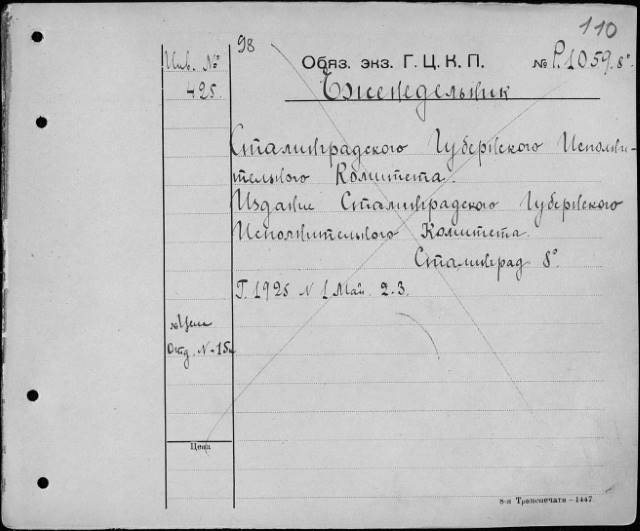 110
98
Инв. №
Обяз. экз. Г. Ц. К. П.
№ Р.1059.8°
425.
Еженедельник
Сталинградского Губернского Исполни-
тельного Комитета.
Издание Сталинградского Губернского
Исполнительного Комитета.
Сталинград 8°
Г. 1925 N 1 Май. 2. 3.
Цена
Отд. N-15к
Цена
8-я Транспечати—1447